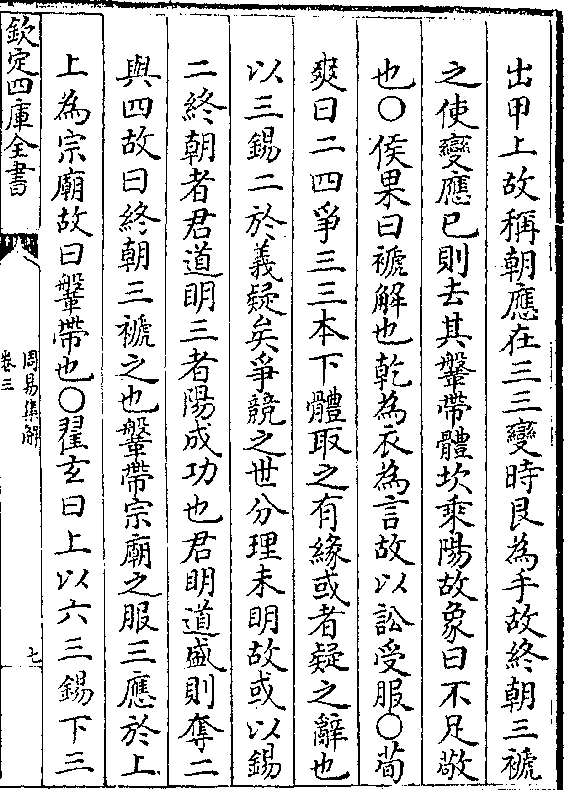 出甲上故稱朝應在三三變時艮為手故終朝三褫
之使變應已則去其鞶帶體坎乘陽故象曰不足敬
也○侯果曰褫解也乾為衣為言故以訟受服○荀
爽曰二四爭三三本下體取之有緣或者疑之辭也
以三錫二於義疑矣爭競之世分理未明故或以錫
二終朝者君道明三者陽成功也君明道盛則奪二
與四故曰終朝三褫之也鞶帶宗廟之服三應於上
上為宗廟故曰鞶帶也○翟玄曰上以六三錫下三
欽定四庫全書
周易集解
卷三
七